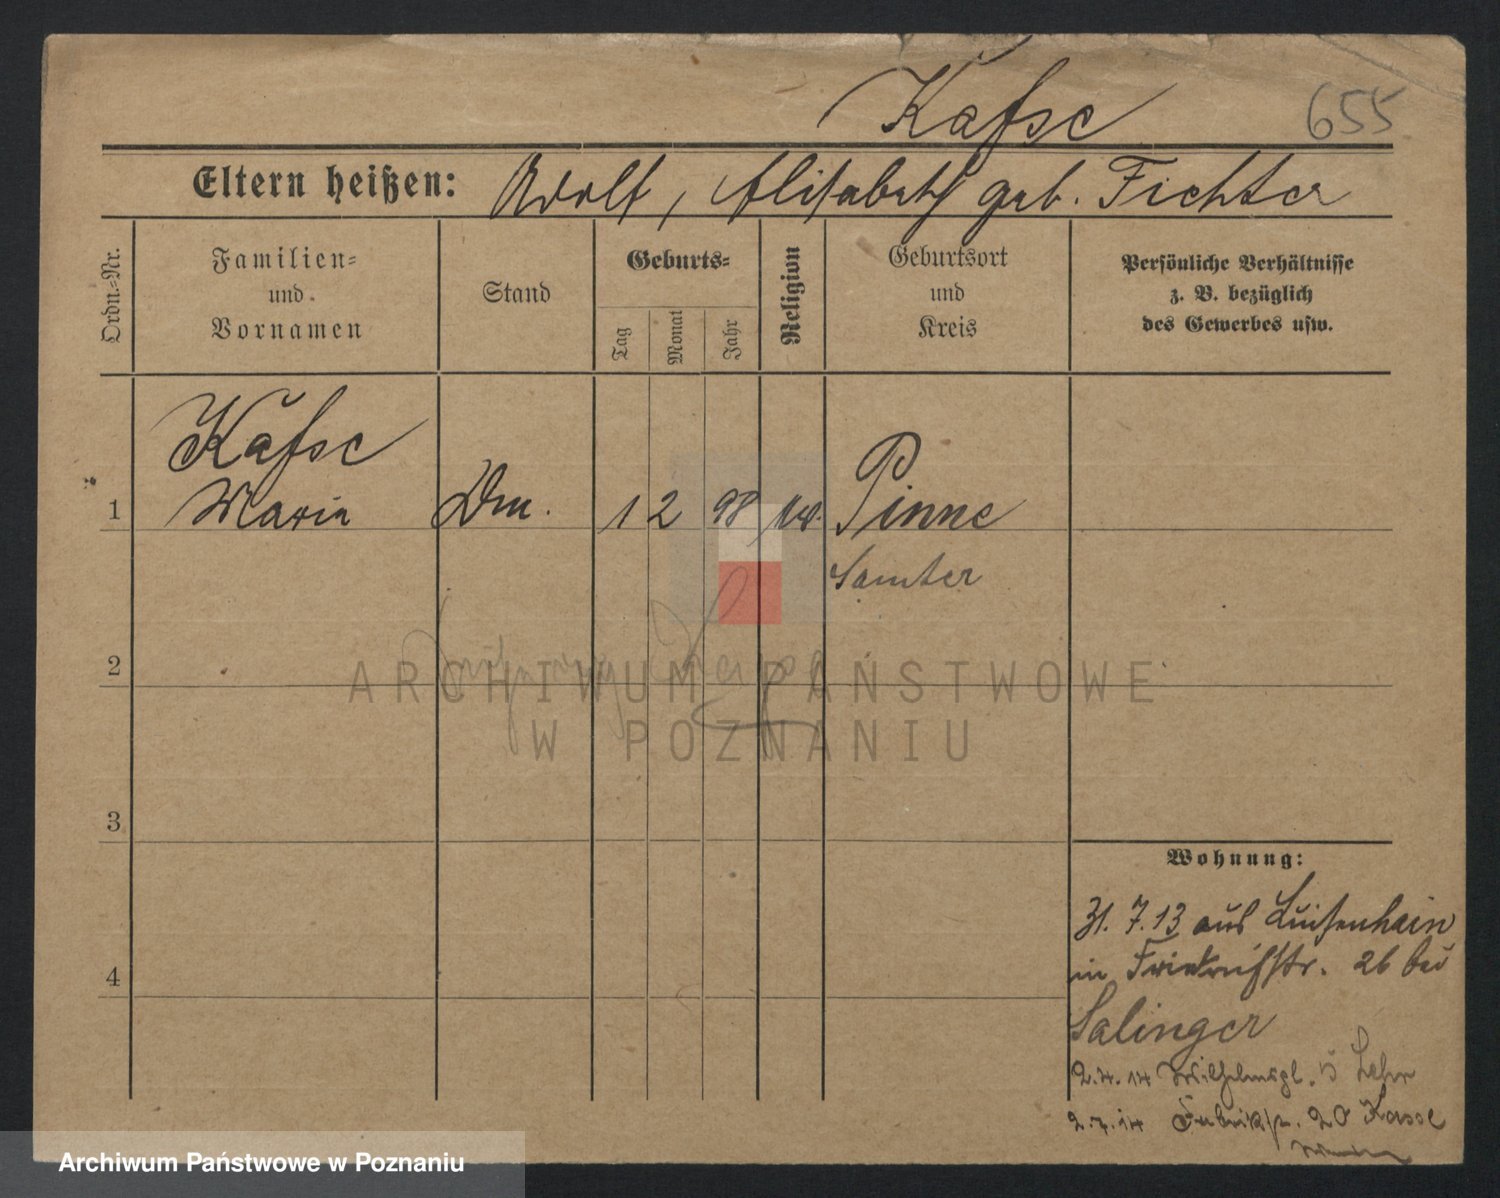 Kafsc
655
Eltern heißen: Adolf, Elisabeth geb. Fichter
Ordn.-Nr.
Familien-
und
Vornamen
Stand
Geburts-
Tag
Monat
Jahr
Religion
Geburtsort
und
Kreis
Persönliche Verhältnisse
z. B. bezüglich
des Gewerbes usw.
Kafsc
1 Maria Dm. 1 2 98 Pinne
Samter
2
ARCHIWUM PAŃSTWOWE
W POZNANIU
3
4
Wohnung:
31. 7. 13 aus Luisenhain
in Friedrichstr. 26 bei
Salinger
2.4.14 Wilhelmspl. 5 Lehr
2.7.14 Fabrikstr. 20 Kasse
Archiwum Państwowe w Poznaniu